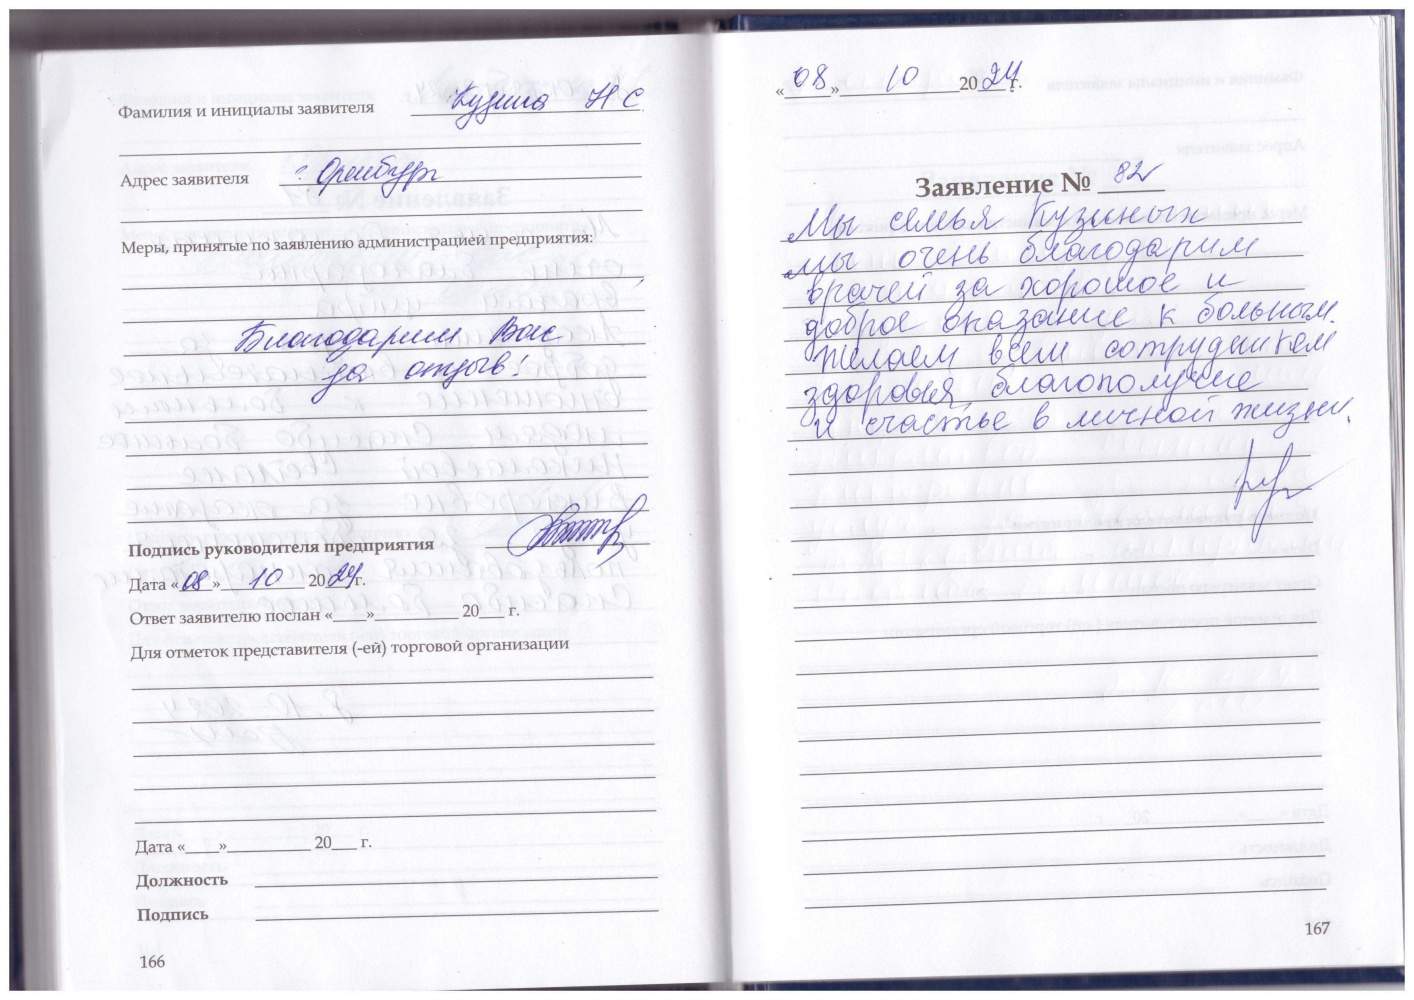 Фамилия и инициалы заявителя Кузина Н С
Адрес заявителя г Оренбург
Меры, принятые по заявлению администрацией предприятия:
Благодарим Вас
за отзыв!
Подпись руководителя предприятия
Дата «08» 10 2024г.
Ответ заявителю послан «____»__________ 20___ г.
Для отметок представителя (-ей) торговой организации
Дата «____»__________ 20___ г.
Должность
Подпись
166
«08» 10 2024 г.
Заявление № 82
Мы семья Кузиных
мы очень благодарим
врачей за хорошое и
доброе оказание к больным.
Желаем всем сотрудникам
здоровья, благополучие
и счастье в личной жизни.
167